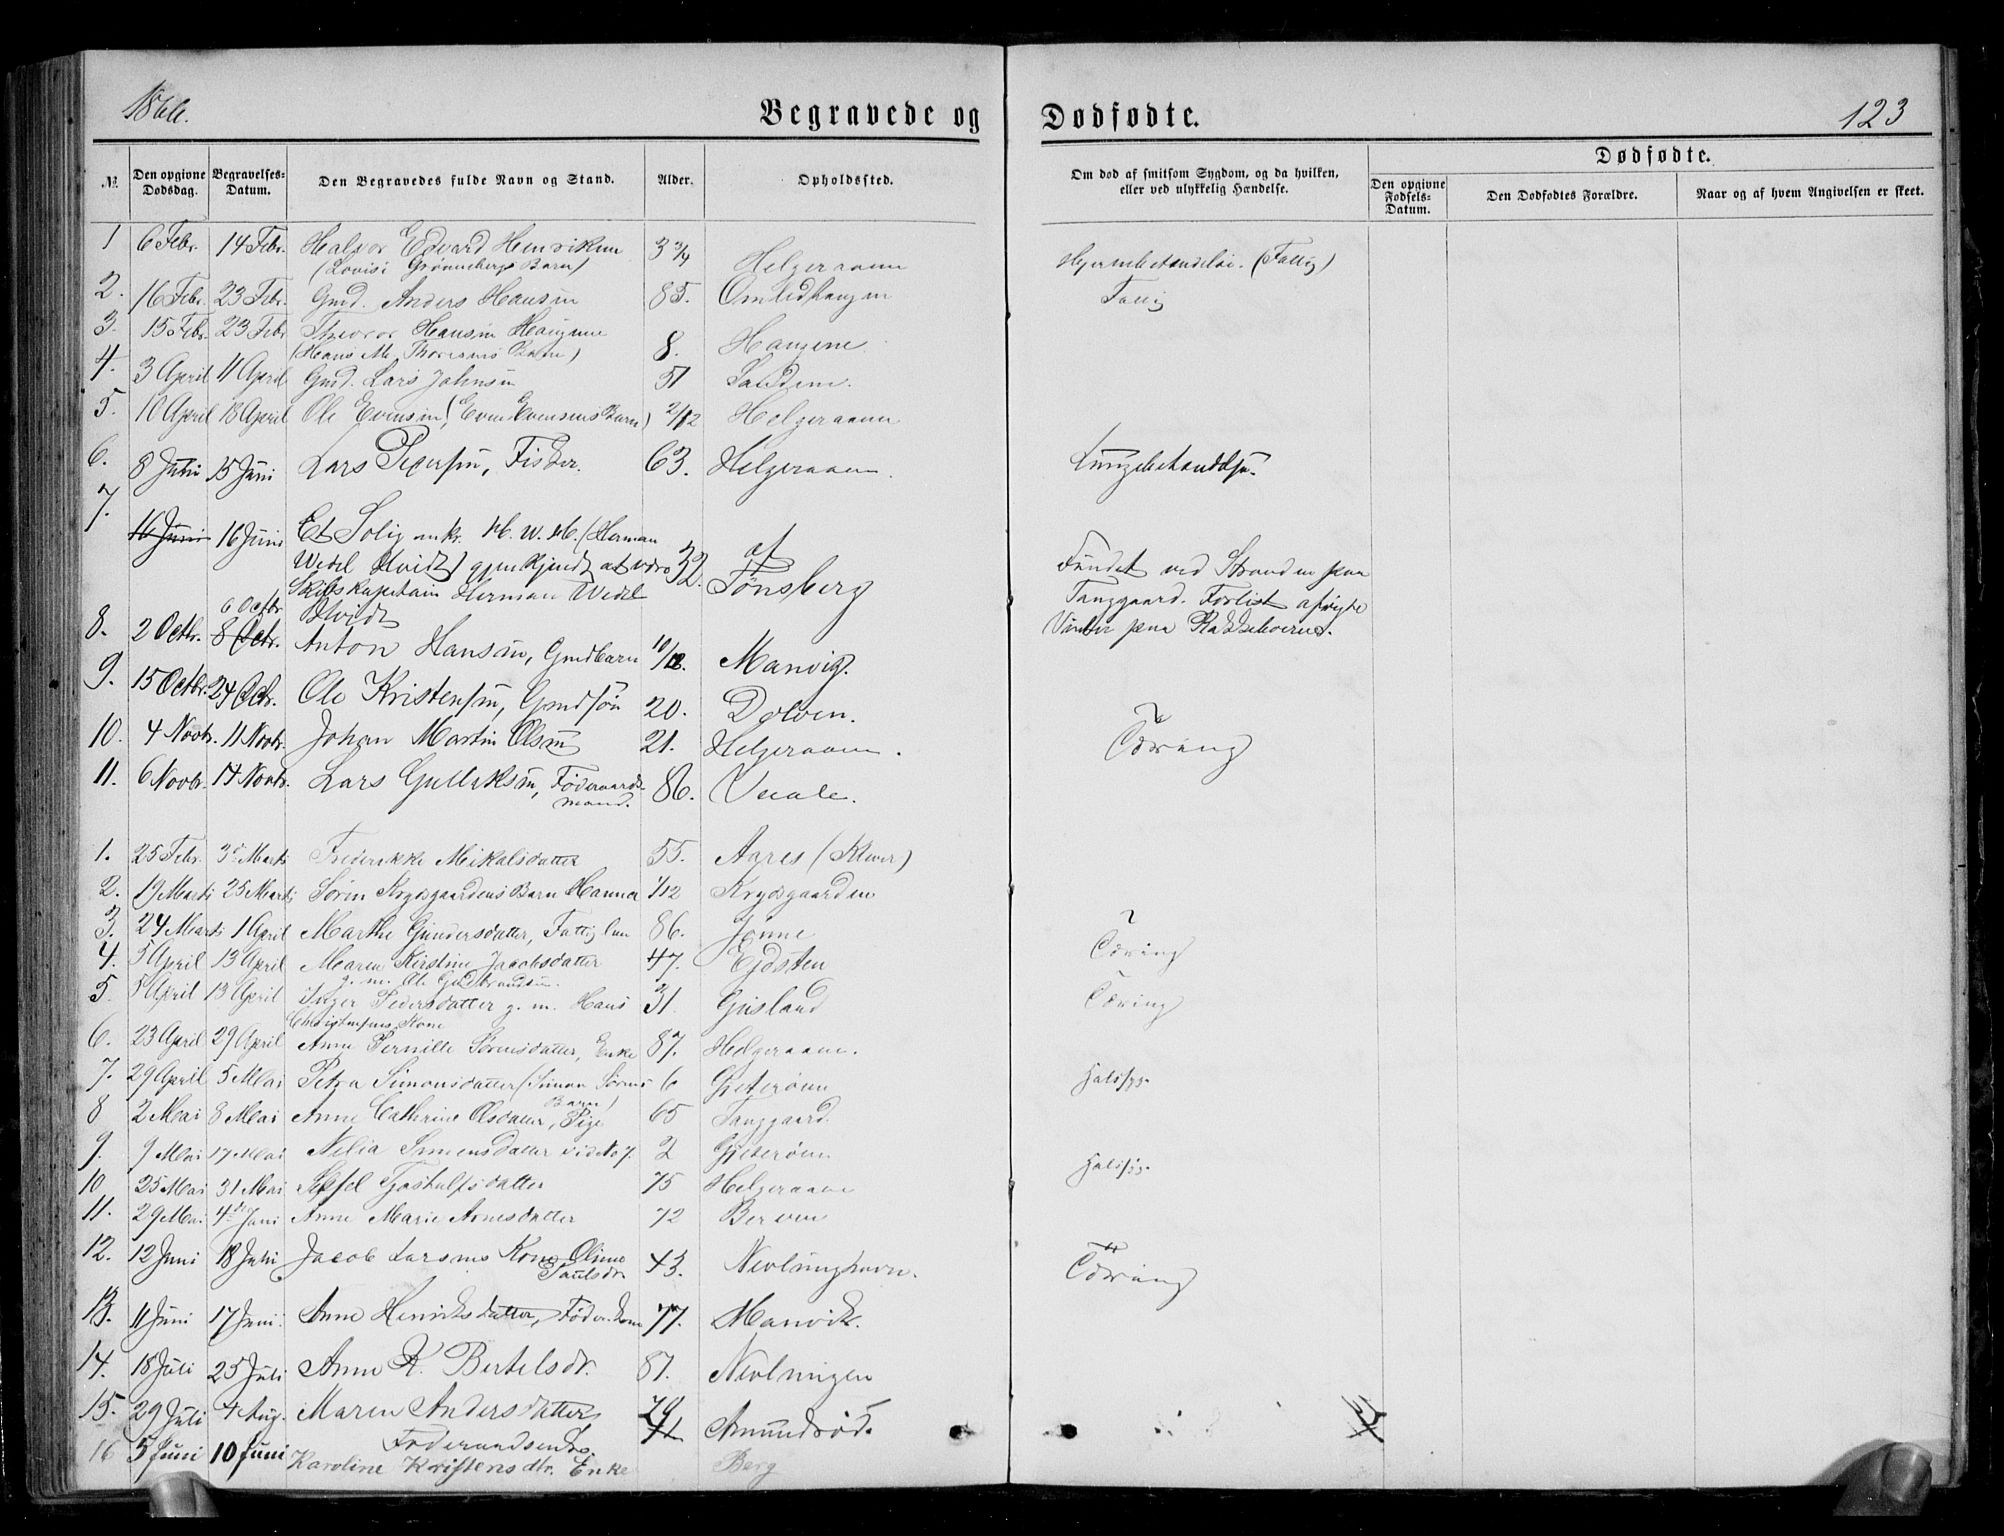 1866.
Begravede og Dødfødte.
123
№
Den opgivne Dødsdag.
Begravelses-Datum.
Den Begravedes fulde Navn og Stand.
Alder.
Opholdssted.
Om død af smitsom Sygdom, og da hvilken, eller ved ulykkelig Hændelse.
Dødfødte.
Den opgivne Fødsels-Datum.
Den Dødfødtes Forældre.
Naar og af hvem Angivelsen er skeet.
1 6 Febr. 14 Febr. Halvor Edvard Henriksen 3 3/4
(Lovise Grønnebergs Barn) Helgeraaen (Fattig)
2. 16 Febr. 23 Febr. Gmd. Anders Hansen 85. Omlidhaugen Fattig
3. 15 Febr. 23 Febr Theodor Hansen Haugene
(Hans M. Thoresens Barn) 8. Haugene
4. 3 April 11 April Gmd. Lars Johnsen 51 Sandene.
5. 10 April 18 April Ole Evensen (Even Evensens Barn) 2/12 Helgeraaen
6. 8 Juni 15 Juni Lars Pedersen, Fisker. 63. Helgeraaen. Lungebetændelse.
7. 16 Juni 16 Juni Et Liig mrk. H. W. H. (Herman
Wedel Hvidt) gjenkjendt at være 32. af Tønsberg Fundet ved Stranden paa
Skibskapitain Herman Wedel Tanggaard. Forlist afvigte
Hvidt Vinter paa Rakkeboerne.
8. 2 Octbr. 6 Octbr 8 Octr. Anton Hansen, Gmdbarn 10/12. Manvig.
9. 15 Octbr. 24 Octr. Ole Kristensen, Gmdsøn 20. Dolven.
10. 4 Novbr. 11 Novbr. Johan Martin Olsen 21. Helgeraaen. Tæring
11. 6 Novbr. 14 Novbr. Lars Gulliksen, Føderaads-
mand. 86. Veale.
1. 25 Febr. 3die Marts Frederikke Mikalsdatter 55. Agres (Klever)
2. 19 Marts 25 Marts Søren Krydsgaardens Barn Hanna 1/12 Krydsgaarden
3. 24 Marts 1 April Marthe Gundersdatter, Fattiglem 86. Jonne
4. 5 April 13 April Maren Kirstine Jacobsdatter 47. Ejdsten Tæring
g. m. Ole Gmd
5. 5 April 13 April Inger Pedersdatter g. m. Hans 31. Gusland Tæring
Christensens Kone
6. 23 April 29 April Anne Pernille Sørensdatter, Enke 87. Helgeraaen.
7. 29 April 5 Mai Petra Simonsdatter (Simon Sørens 6 Gjeterøen Halssyge
Barn)
8 2 Mai 8 Mai Anne Cathrine Olsdatter, Pige 65 Tanggaard
9. 9 Mai 17 Mai Nelia Simensdatter vide No 7. 2 Gjeterøen Halssyge
10 25 Mai 31 Mai 75 Helgeraaen
11. 29 Mai 4de Juni Anne Marie Arnesdatter 72 Berven
12. 12 Juni 18 Juni Jacob Larsens Kone Oline
Paulsdr. 43. Nevlunghavn. Tæring
13. 11 Juni 17 Juni Anne Henriksdatter, Føder.kone 77. Manvik.
14. 18 Juli 25 Juli Anne K. Bertelsdr. 87. Nevlungen
15. 29 Juli 4 Aug. Maren Andersdatter 79 Amundrød.
Føderaadsenke.
16 5 Juni 10 Juni Karoline Kristensdtr. Enke Berg